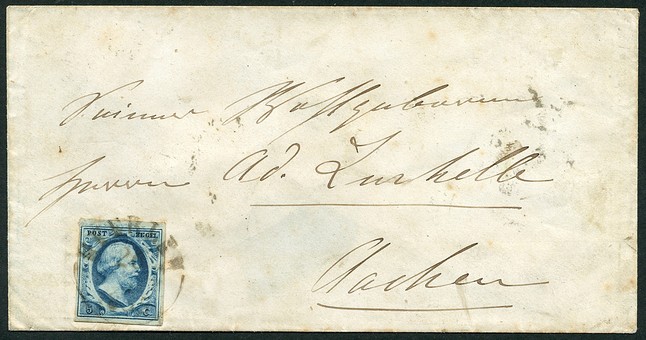 Seiner Wohlgeboren
Herrn Ad. Zurhelle
Aachen
POST ZEGEL
5 C